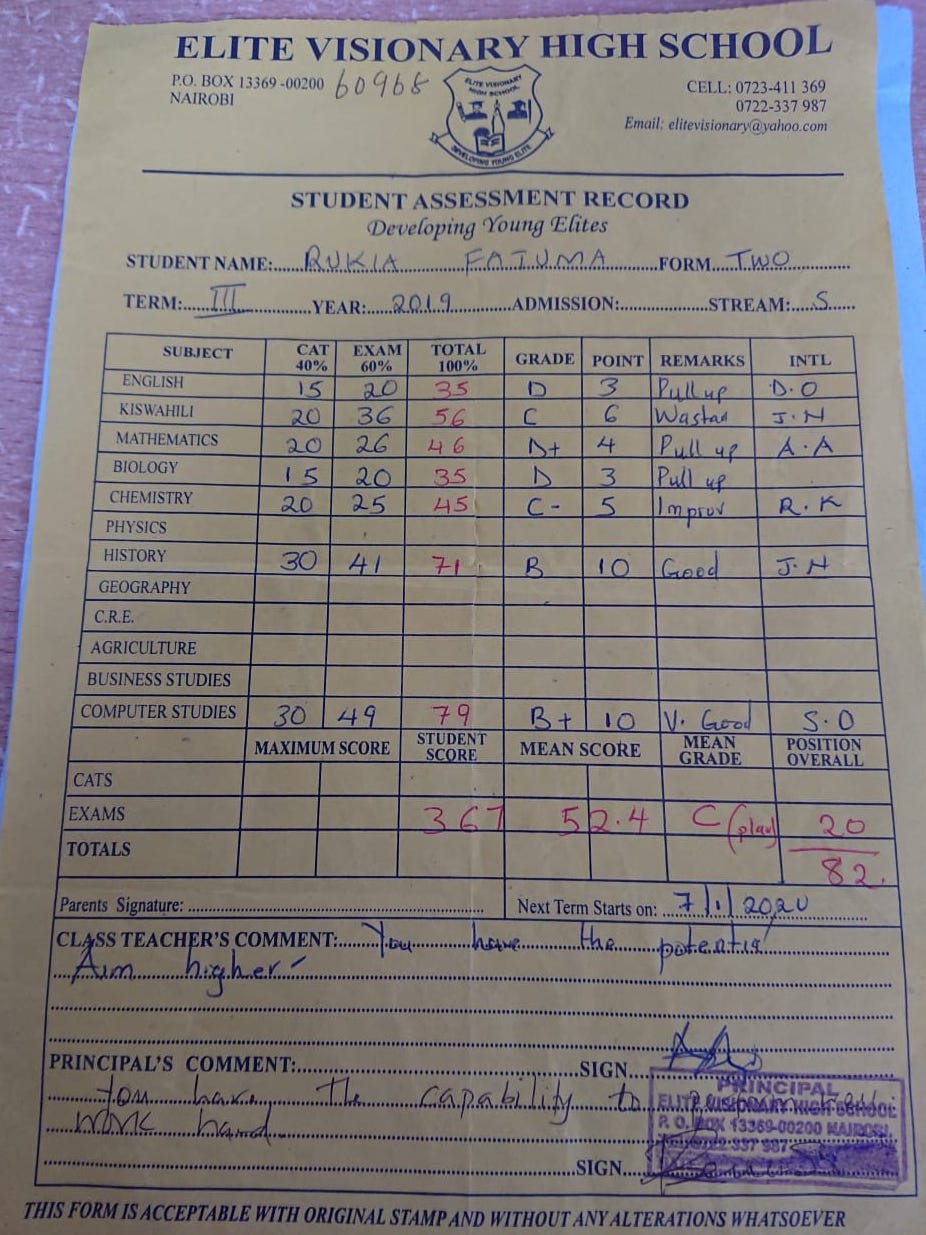 ELITE VISIONARY HIGH SCHOOL
P.O. BOX 13369 -00200 60968
NAIROBI
CELL: 0723-411 369
0722-337 987
Email: elitevisionary@yahoo.com
ELITE VISIONARY
HIGH SCHOOL
DEVELOPING YOUNG ELITE
STUDENT ASSESSMENT RECORD
Developing Young Elites
STUDENT NAME: RUKIA FATUMA FORM TWO
TERM: III YEAR: 2019 ADMISSION: STREAM: S
SUBJECT CAT 40% EXAM 60% TOTAL 100% GRADE POINT REMARKS INTL
ENGLISH 15 20 35 D 3 Pull up D.O
KISWAHILI 20 36 56 C 6 Wastan J.N
MATHEMATICS 20 26 46 D+ 4 Pull up A.A
BIOLOGY 15 20 35 D 3 Pull up
CHEMISTRY 20 25 45 C- 5 Improv R.K
PHYSICS
HISTORY 30 41 71 B 10 Good J.N
GEOGRAPHY
C.R.E.
AGRICULTURE
BUSINESS STUDIES
COMPUTER STUDIES 30 49 79 B+ 10 V. Good S.O
MAXIMUM SCORE STUDENT SCORE MEAN SCORE MEAN GRADE POSITION OVERALL
CATS
EXAMS 367 52.4 C (plain) 20
TOTALS 82
Parents Signature: Next Term Starts on: 7/1/2020
CLASS TEACHER'S COMMENT: You have the potential
Aim higher
SIGN
PRINCIPAL'S COMMENT:
You have the capability to
work hard
SIGN
PRINCIPAL
ELITE VISIONARY HIGH SCHOOL
P. O. BOX 13369-00200 NAIROBI
0722 337 987
THIS FORM IS ACCEPTABLE WITH ORIGINAL STAMP AND WITHOUT ANY ALTERATIONS WHATSOEVER